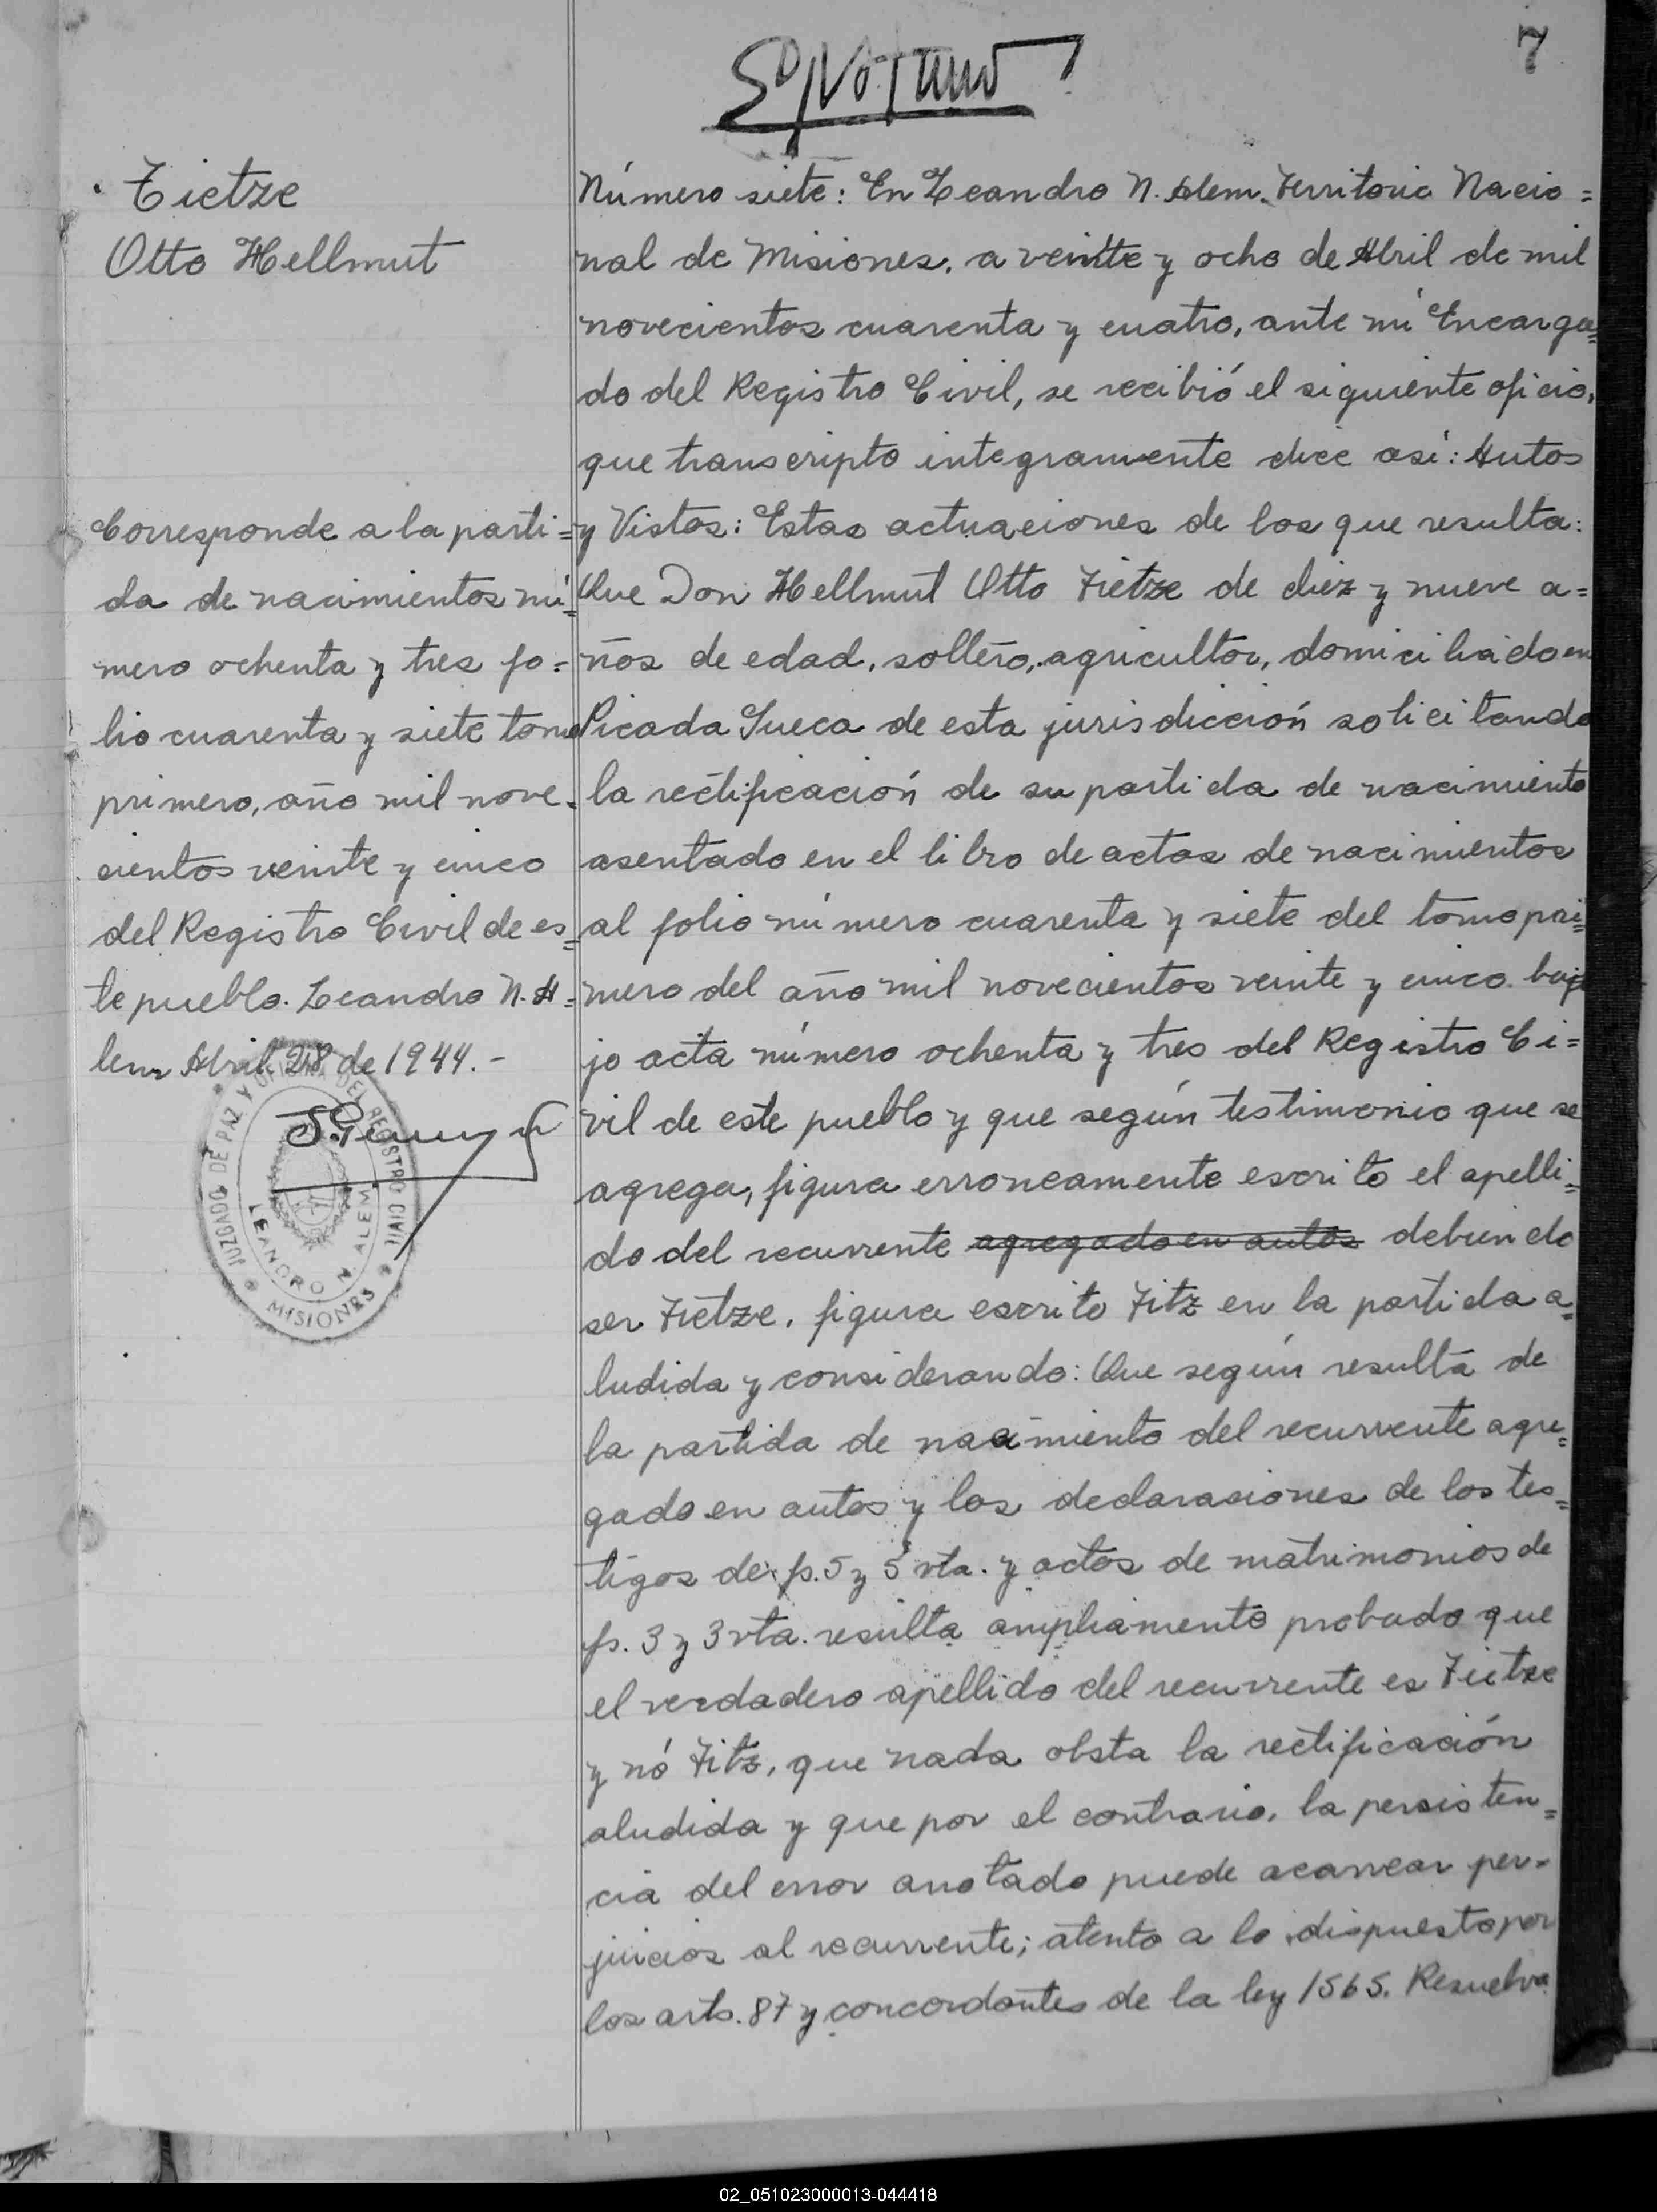 7
Tietze
Otto Hellmut
Corresponde a la parti=
da de nacimientos nú=
mero ochenta y tres fo=
lio cuarenta y siete tomo
primero, año mil nove-
cientos veinte y cinco
del Registro Civil de es=
te pueblo. Leandro N. A=
lem Abril 28 de 1944.-
JUZGADO DE PAZ Y OFICINA DEL REGISTRO CIVIL
LEANDRO N. ALEM
MISIONES
Número siete: En Leandro N. Alem. Territorio Nacio=
nal de Misiones, a veinte y ocho de Abril de mil
novecientos cuarenta y cuatro, ante mí Encarga=
do del Registro Civil, se recibió el siguiente oficio,
que transcripto integramente dice así: Autos
y Vistos: Estas actuaciones de los que resulta:
Que Don Hellmut Otto Tietze de diez y nueve a=
ños de edad, soltero, agricultor, domiciliado en
Picada Sueca de esta jurisdicción solicitando
la rectificación de su partida de nacimiento
asentado en el libro de actas de nacimientos
al folio número cuarenta y siete del tomo pri=
mero del año mil novecientos veinte y cinco baj
jo acta número ochenta y tres del Registro Ci=
vil de este pueblo y que según testimonio que se
agrega, figura erroneamente escrito el apelli=
do del recurrente agregado en autos debiendo
ser Tietze, figura escrito Titz en la partida a=
ludida y considerando: Que según resulta de
la partida de nacimiento del recurrente agre=
gado en autos y las declaraciones de los tes=
tigos de fs. 5 y 5 vta. y actas de matrimonios de
fs. 3 y 3 vta. resulta ampliamente probado que
el verdadero apellido del recurrente es Tietze
y nó Titz, que nada obsta la rectificación
aludida y que por el contrario, la persisten=
cia del error anotado puede acarrear per-
juicios al recurrente; atento a lo dispuesto por
los arts. 87 y concordantes de la ley 1565. Resuelvo
02_051023000013-044418